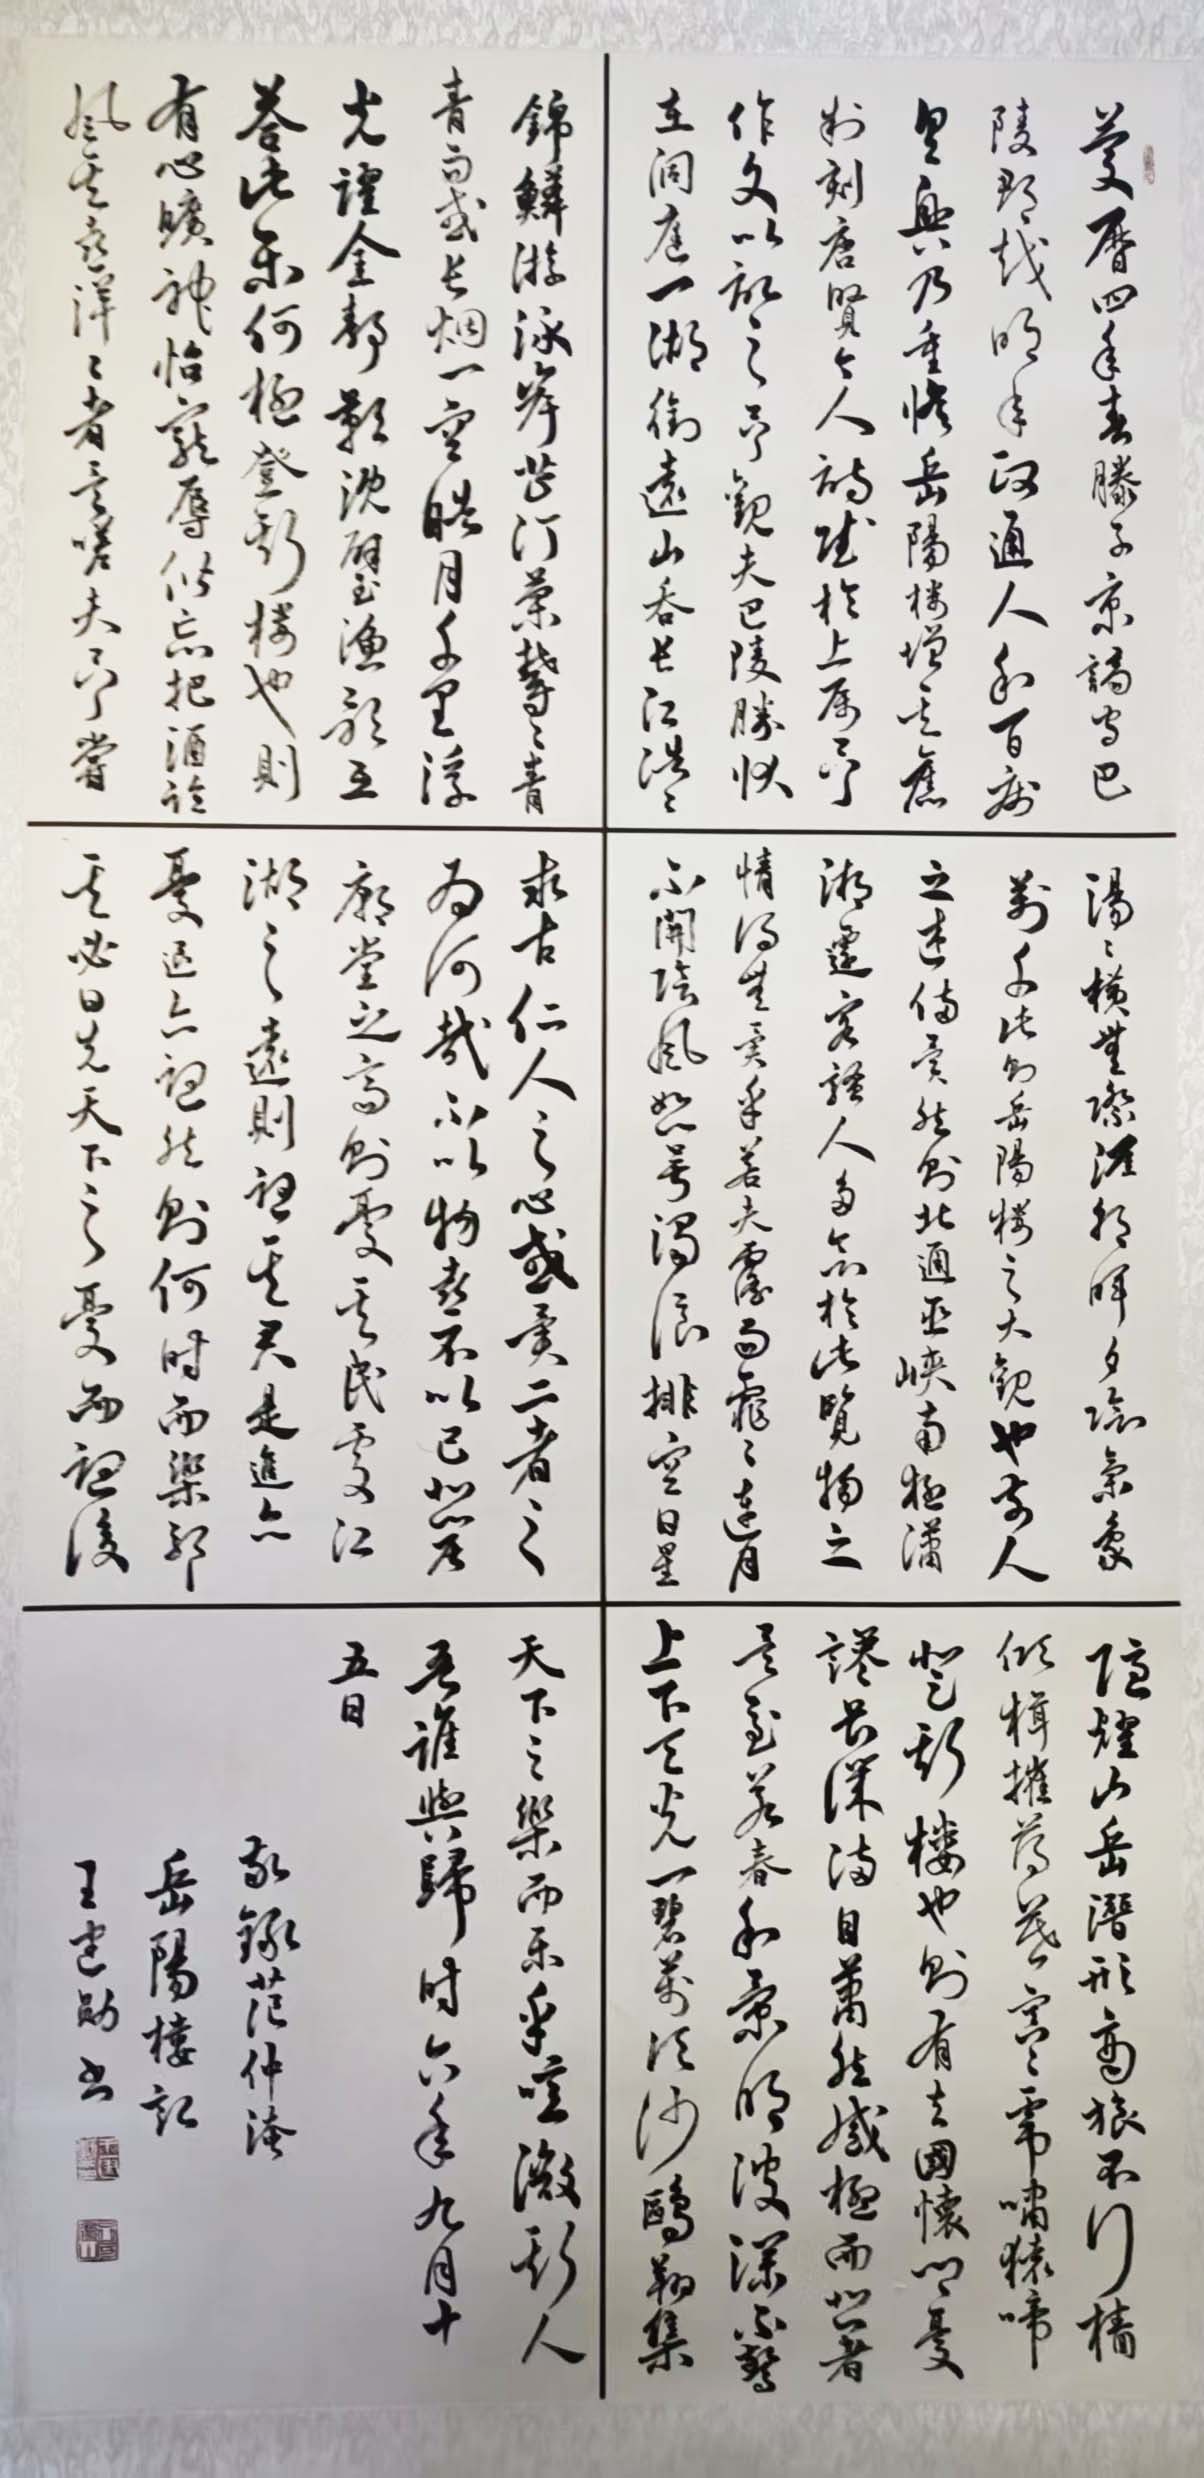 慶曆四年春滕子京謫守巴
陵郡越明年政通人和百廢
具興乃重修岳陽楼增其舊
制刻唐賢今人詩賦於上属予
作文以記之予觀夫巴陵勝狀
在洞庭一湖銜遠山吞長江浩〻
湯〻橫無際涯朝暉夕陰氣象
萬千此則岳陽楼之大觀也前人
之述備矣然則北通巫峽南極瀟
湘遷客騷人多會於此覽物之
情得無異乎若夫霪雨霏〻連月
不開陰風怒号濁浪排空日星
隱耀山岳潛形商旅不行檣
傾楫摧薄暮冥〻虎嘯猿啼
登斯楼也則有去國懷鄉憂
讒畏譏滿目蕭然感極而悲者
矣至若春和景明波瀾不驚
上下天光一碧萬頃沙鷗翔集
錦鱗游泳岸芷汀蘭鬱〻青
青而或長烟一空皓月千里浮
光躍金靜影沉璧漁歌互
答此樂何極登斯楼也則
有心曠神怡寵辱偕忘把酒臨
風其喜洋〻者矣嗟夫予嘗
求古仁人之心或異二者之
為何哉不以物喜不以己悲居
廟堂之高則憂其民處江
湖之遠則憂其君是進亦
憂退亦憂然則何時而樂耶
其必曰先天下之憂而憂後
天下之樂而樂乎噫微斯人
吾誰與歸時六年九月十
五日
敬錄范仲淹
岳陽樓記
王建勛書